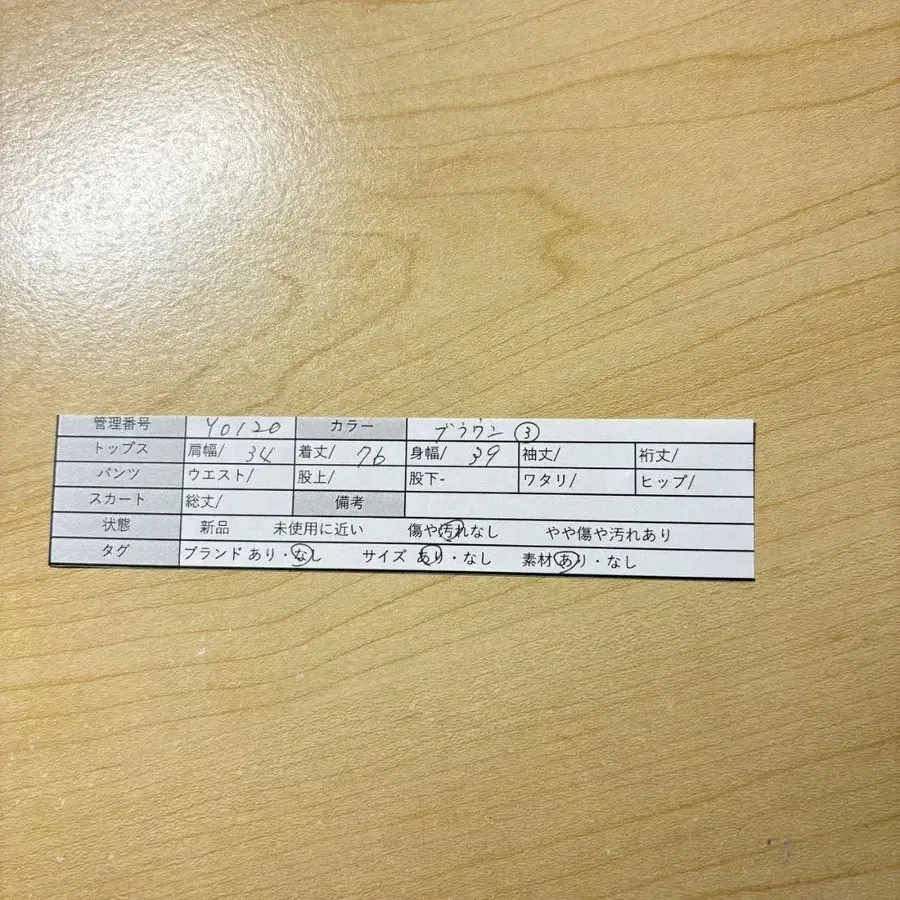 管理番号 Y0120 カラー ブラウン ③
トップス 肩幅/ 34 着丈/ 76 身幅/ 39 袖丈/ 裄丈/
パンツ ウエスト/ 股上/ 股下- ワタリ/ ヒップ/
スカート 総丈/ 備考
状態 新品 未使用に近い 傷や汚れなし やや傷や汚れあり
タグ ブランド あり・なし サイズ あり・なし 素材 あり・なし